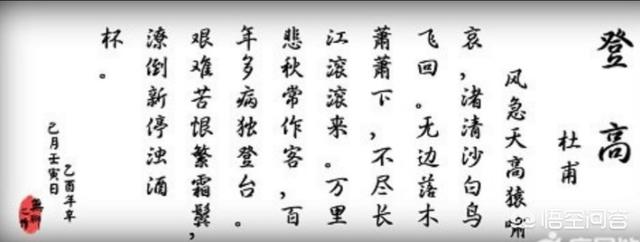 登高
杜甫
风急天高猿啸
哀，渚清沙白鸟
飞回。无边落木
萧萧下，不尽长
江滚滚来。万里
悲秋常作客，百
年多病独登台。
艰难苦恨繁霜鬓，
潦倒新停浊酒
杯。
乙酉年辛
己月壬寅日
悟空问答